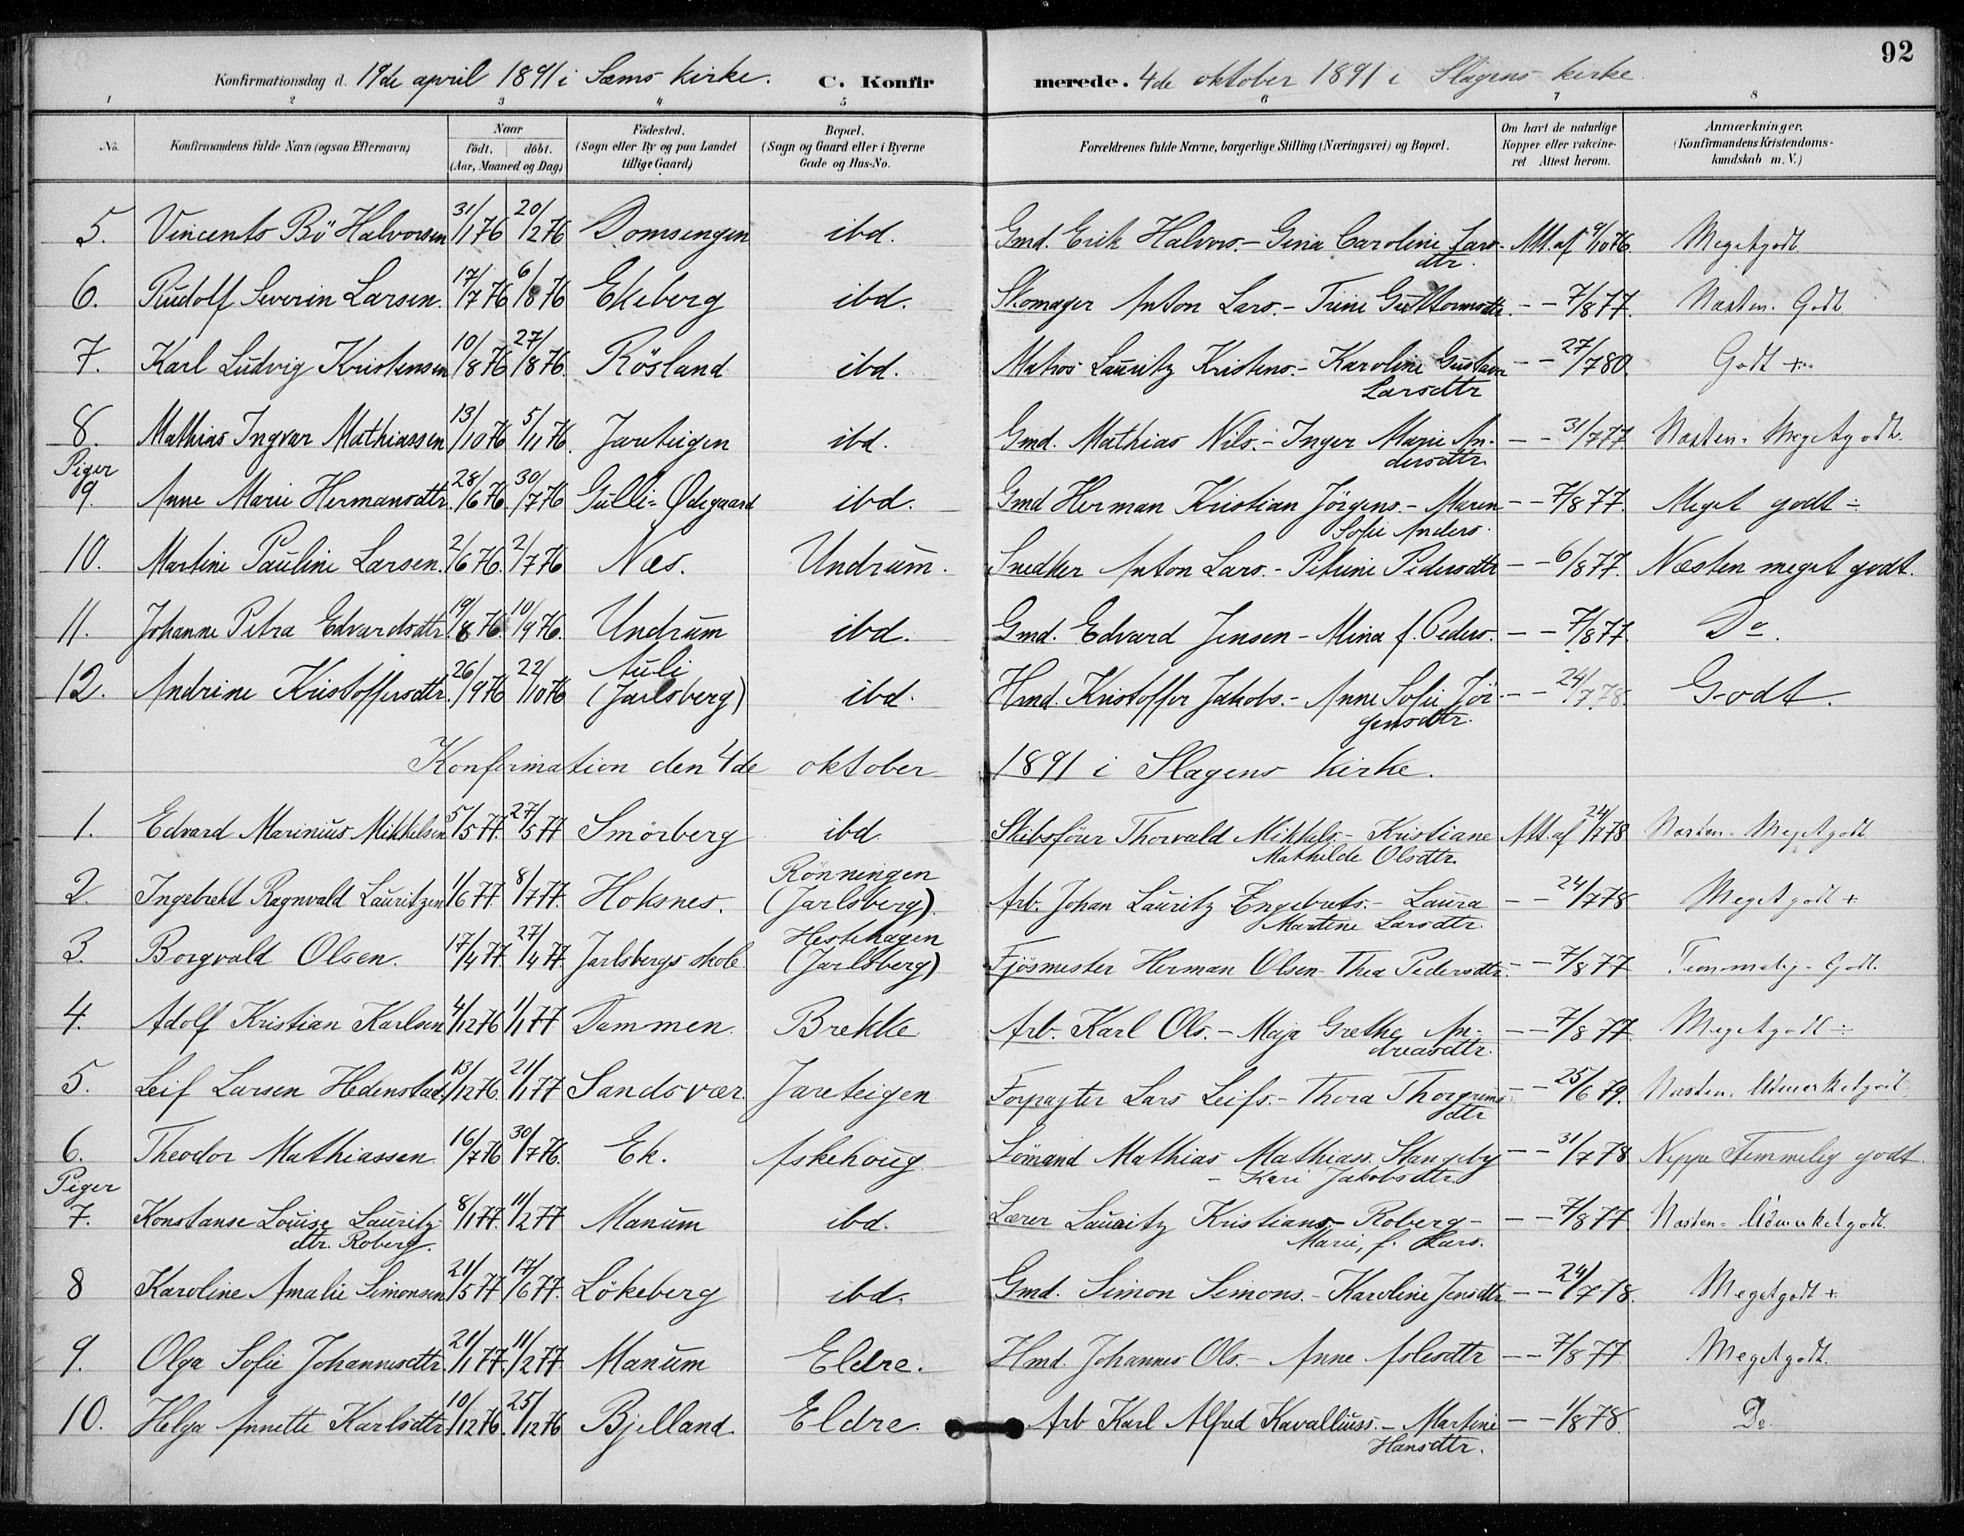 92
Konfirmationsdag d. 19de april 1891 i Sems kirke. C. Konfirmerede. 4de oktober 1891 i Slagens kirke.
1 2 3 4 5 6 7 8
No. Konfirmandens fulde Navn (ogsaa Efternavn) Naar født. døbt. (Aar, Maaned og Dag) Fødested. (Sogn eller By og paa Landet tillige Gaard) Bopæl. (Sogn og Gaard eller i Byerne Gade og Hus-No. Forældrenes fulde Navne, borgerlige Stilling (Næringsvei) og Bopæl. Om havt de naturlige Kopper eller vakcineret Attest herom. Anmærkninger. (Konfirmandens Kristendomskundskab m. V.)
5. Vincents Bö Halvorsen 31/1 76 20/2 76 Domsengen ibd. Gmd. Erik Halvors. - Gina Caroline Larsdtr. Att. af 9/10 76. Megetgodt.
6. Rudolf Severin Larsen. 17/7 76 6/8 76 Ekeberg ibd. Skomager Anton Lars. - Trine Guttormsdtr. - - 7/8 77. Næsten Godt
7. Karl Ludvig Kristensen 10/8 76 27/8 76. Rösland ibd. Matros Lauritz Kristens. - Karoline Gustava Larsdtr - - 27/7 80. Godt +
8. Mathias Ingvar Mathiassen 13/10 76 5/11 76. Jareteigen ibd. Gmd. Mathias Nils. - Inger Marie Andersdtr. - - 31/7 77. Næsten Megetgodt.
Piger
9. Anne Marie Hermansdtr. 28/6 76. 30/7 76 Gulli-Ødegaard ibd. Gmd Herman Kristian Jörgens. - Maren Sofie Anders. - - 7/8 77. Meget godt ÷
10. Martine Pauline Larsen. 2/6 76. 2/7 76 Næs. Undrum. Snedker Anton Lars. - Petrine Pedersdtr - - 6/8 77. Næsten meget godt.
11. Johanne Petra Edvardsdtr. 19/8 76. 10/9 76. Undrum ibd. Gmd. Edvard Jensen - Mina f. Peders. - - 7/8 77. Do.
12. Andrine Kristoffersdtr. 26/9 76 22/10 76 Auli (Jarlsberg) ibd. Hmd. Kristoffer Jakobs. - Anne Sofie Jörgensdtr. - - 24/7 78. Godt.
Konfirmation den 4de oktober 1891 i Slagens kirke.
1. Edvard Marinius Mikkelsen 5/5 77. 27/5 77 Smörberg ibd. Skibsförer Thorvald Mikkels. - Kristiane Mathilde Olsdtr. Att. af 24/7 78 Næsten Megetgodt
2. Ingebrekt Ragnvald Lauritzen 1/6 77. 8/7 77. Hoksnes. Rönningen (Jarlsberg). Arb. Johan Lauritz Engebrets. - Laura Martine Larsdtr. - - 24/7 78 Megetgodt +
3. Borgvald Olsen. 17/4 77. 27/4 77. Jarlsbergs skole Hestehagen (Jarlsberg) Fjösmester Herman Olsen - Thea Pedersdtr. - - 7/8 77 Temmelig Godt.
4. Adolf Kristian Karlsen 4/12 76 1/1 77 Dammen. Brekke Arb. Karl Ols. - Maja Grethe Andreasdtr. - - 7/8 77. Megetgodt ÷
5. Leif Larsen Hedenstad. 13/12 76. 21/1 77 Sandsvær. Jareteigen Forpagter Lars Leifs. - Thora Thorgrimsdtr - - 25/6 79. Næsten Udmerketgodt
6. Theodor Mathiassen 16/7 76 30/7 76. Ek. Askehoug Sömand Mathias Mathiass. Slangeby - Kari Jakobsdtr - - 31/7 78 Neppe Temmelig godt.
Piger
7. Konstanse Louise Lauritzdtr. Roberg. 8/1 77. 11/2 77 Manum ibd. Lærer Lauritz Kristians. Roberg - Marie, f. Lars. - - 7/8 77 Næsten Udmerketgodt.
8 Karoline Amalie Simonsen 21/5 77. 17/6 77. Lökeberg ibd. Gmd. Simon Simons. - Karoline Jensdtr - - 24/7 78. Megetgodt +
9. Olga Sofie Johannesdtr. 21/1 77. 11/2 77 Manum Eldre. Hmd. Johannes Ols. - Anne Aslesdtr - - 7/8 77 Megetgodt.
10. Helga Annette Karlsdtr. 10/12 76. 25/12 76 Bjelland. Eldre. Arb Karl Alfred Kavalliuss. - Martine Hansdtr. - - 1/8 78. Do